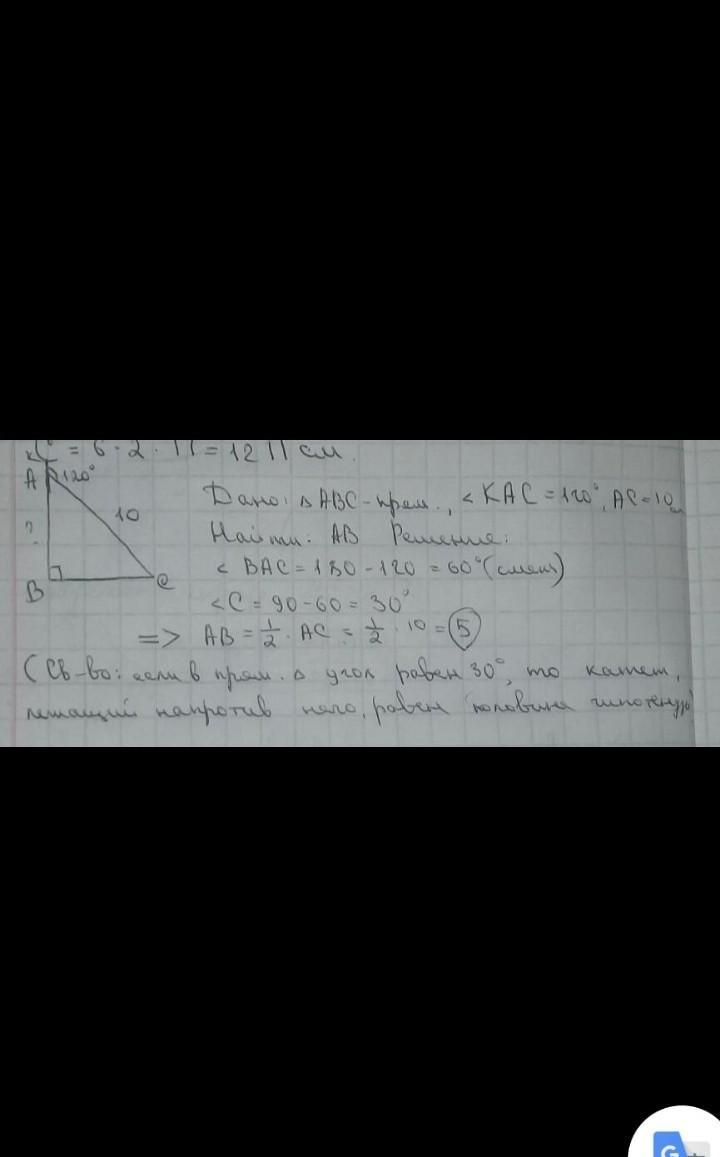 = 6 · 2 · П = 12 П см.
К
А 120°
10
?
В
С
Дано: △ АВС - прям., < КАС = 120°, АС = 10
Найти: АВ Решение:
< ВАС = 180 - 120 = 60° (смеж)
< С = 90 - 60 = 30°
=> АВ = 1/2 · АС = 1/2 · 10 = 5
(Св-во: если в прям. △ угол равен 30°, то катет,
лежащий напротив него, равен половина гипотенузы